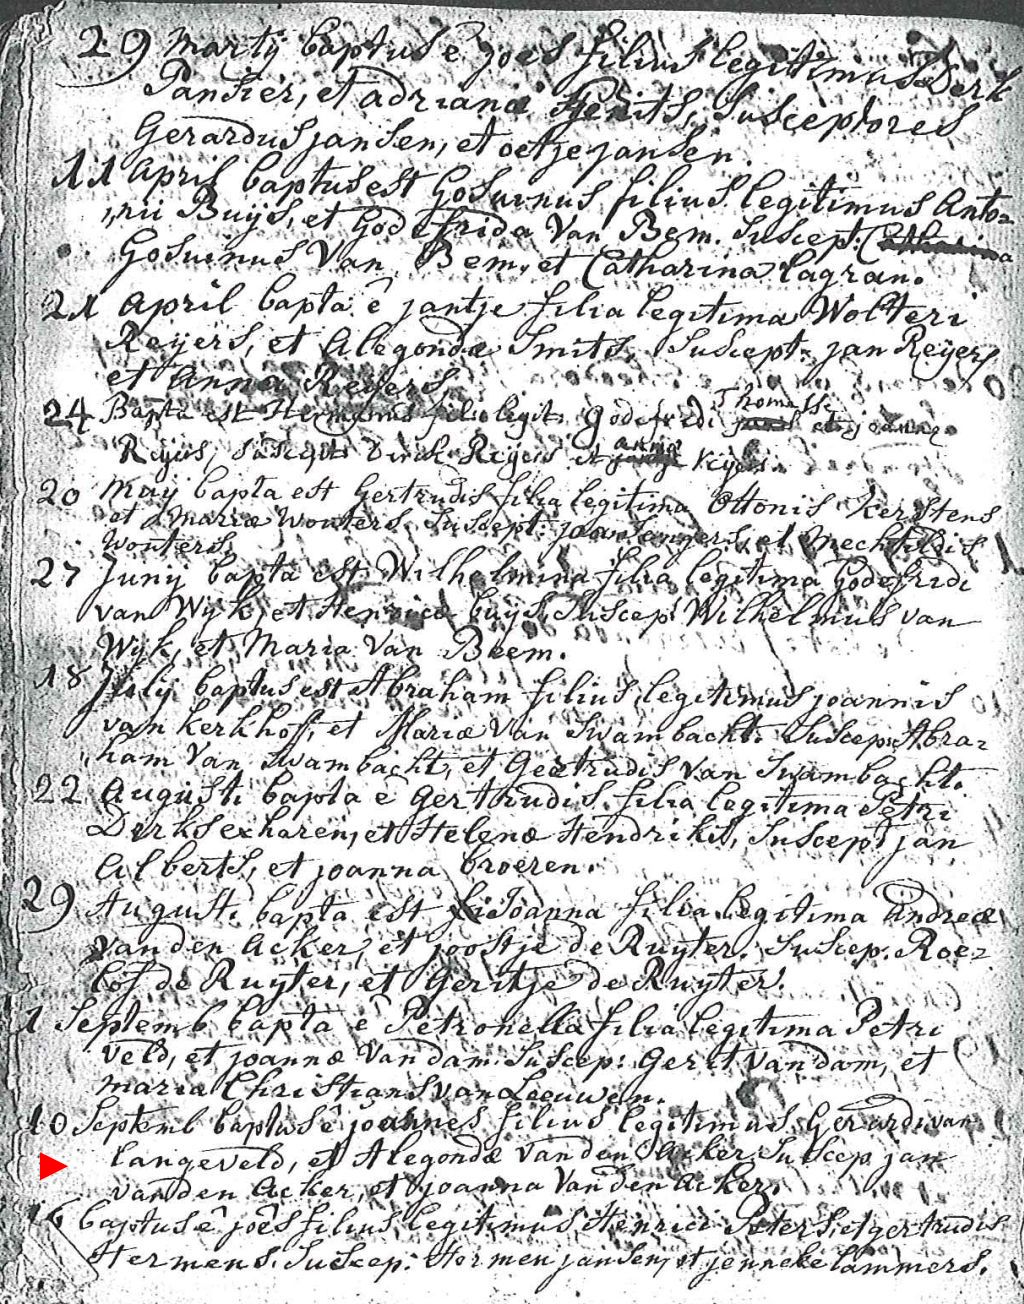 29 Martij baptus ê joês filius legitimus Derk
Pansier, et adriana Gerits, Susceptores
Gerardus jansen, et oetje jansen.
11 April baptus est Gosuinus filius legitimus Anto=
nii Buijs, et Godefrida Van Bem. Suscept:
Gosuinus Van Bem, et Catharina lagran.
21 April bapta ê jantje filia legitima Wolteri
Reijers, et Alegondæ Smits, Suscept: jan Reijers
et Anna Reijers
24 Bapta est Hermanus legit: Godefridi Thomass et joannæ
Reijers, Suscept: Dirck Reijers et anna Reijers.
20 Maij bapta est Gertrudis filia legitima Ottonis Kerstens
et Mariæ Wouters, Suscept: et Mechtildis
Wouters.
27 Junij bapta est Wilhelmina filia legitima Godefridi
van Wijk, et Henricæ buijs, Suscep: Wilhelmus van
Wijk, et Maria Van Beem.
18 Julij baptus est Abraham filius legitimus joannis
van Kerkhoff, et Mariæ Van Swambacht. Suscep: Abra=
ham Van Swambacht, et Geertrudis van Swambacht.
22 Augusti bapta ê Gertrudis filia legitima Petri
Derksexharen, et Helenæ Hendriks, Suscept jan
Alberts, et joanna broeren.
29 Augusti bapta est Joanna filia legitima Andreæ
Van den Acker, et joostje de Ruyter. Suscep. Roe=
lof de Ruyter, et Geritje de Ruyter.
1 Septemb bapta ê Petronella filia legitima Petri
Veld, et joannæ Van dam. Suscep: Gerit van dam, et
maria Christians van Leeuwen.
10 Septemb baptus ê joannes filius legitimus Gerardi van
langeveld, et Alegondæ Van den Acker Suscep jan
Van den Acker, et joanna Van den acker.
16 baptus ê joês filius legitimus Henrici Peters, et gertrudis
Hermens. Suscep: Hermen jansen, et jenneke lammers.